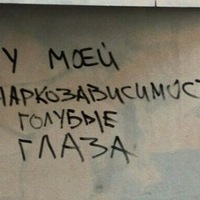 У МОЕЙ
НАРКОЗАВИСИМОСТ
ГОЛУБЫЕ
ГЛАЗА